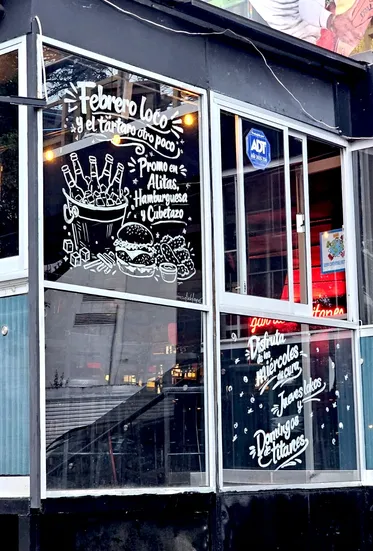 Febrero loco
y el tártaro otro poco
Promo en
Alitas,
Hamburguesa
y Cubetazo
ADT
Disfruta
de los
Miércoles
Jueves lokos
Domingos
de titanes